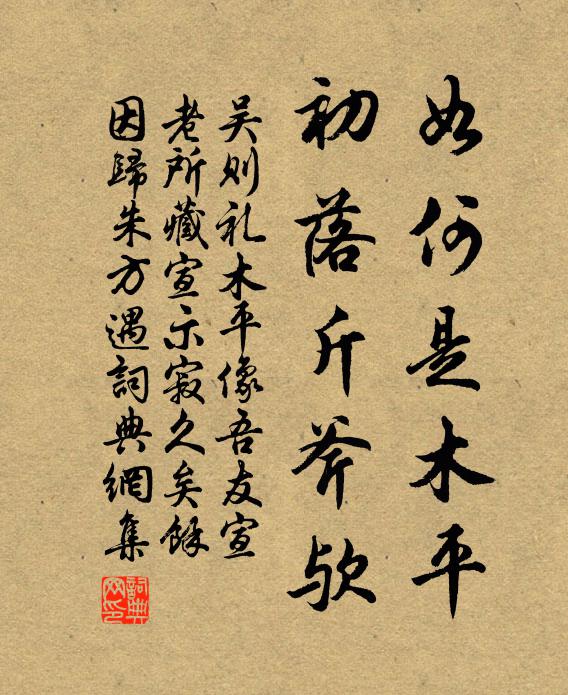 如何是木平
初落斤斧欤
吴则礼木平像吾友宣
老所藏宣示寂久矣餘
因歸朱方遇詞典網集
詞典网印